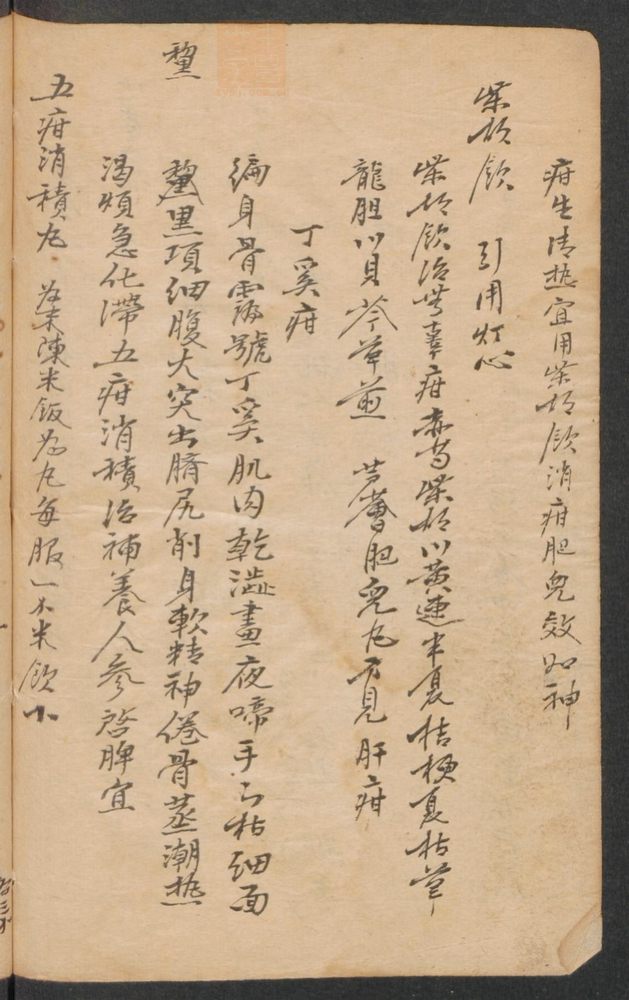 疳生清热宜用柴胡飲消疳肥児效如神
柴胡飲 引用灯心
柴胡飲治無辜疳赤芍柴胡川黄連半夏桔梗夏枯草
龍胆川貝芩草煎 芦薈肥児丸下見肝疳
丁奚疳
編身骨露號丁奚肌肉乾澁晝夜啼手足枯细面
黧黑項细腹大突出臍尻削身軟精神倦骨蒸潮热
渴煩急化滯五疳消積治補養人參啓脾宜
黧
五疳消積丸 為末陳米飯為丸每服一米飲下